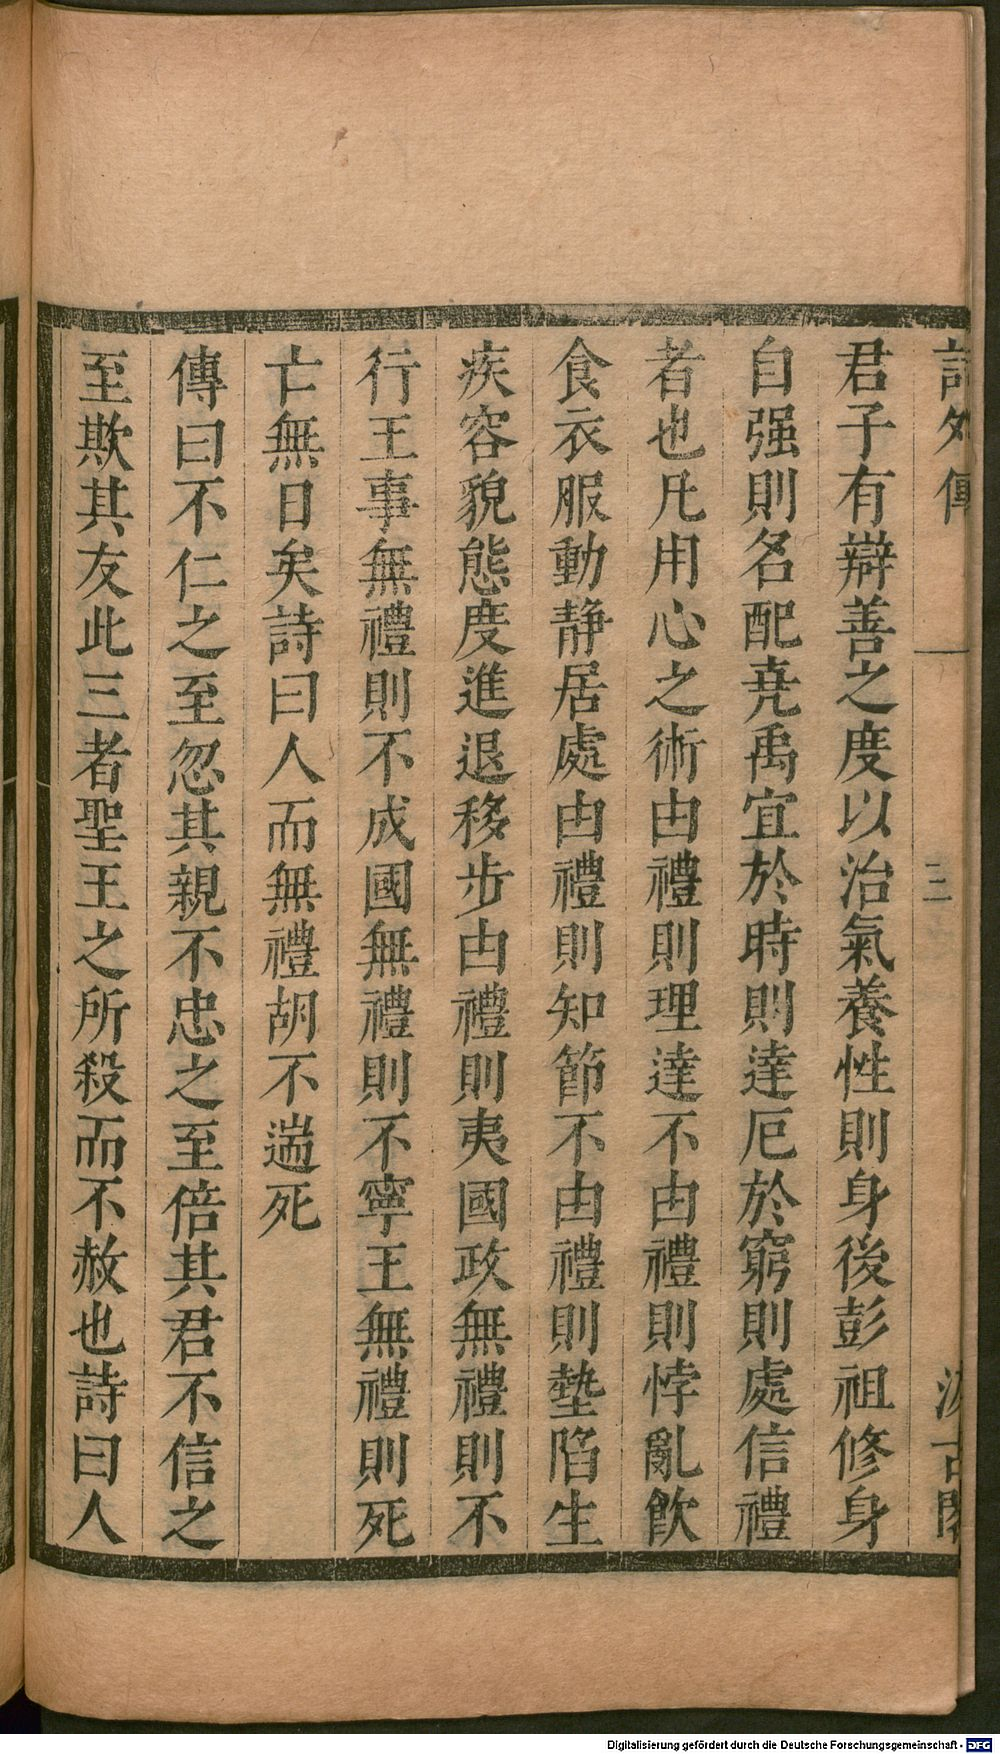 詩外傳 一 三 汲古閣
君子有辯善之度以治氣養性則身後彭祖修身
自强則名配尭禹宜於時則達厄於窮則處信禮
者也凡用心之術由禮則理達不由禮則悖亂飲
食衣服動静居處由禮則知節不由禮則墊陷生
疾容貌態度進退移步由禮則夷國政無禮則不
行王事無禮則不成國無禮則不寧王無禮則死
亡無日矣詩曰人而無禮胡不遄死
傳曰不仁之至忽其親不忠之至倍其君不信之
至欺其友此三者聖王之所殺而不赦也詩曰人
Digitalisierung gefördert durch die Deutsche Forschungsgemeinschaft - DFG